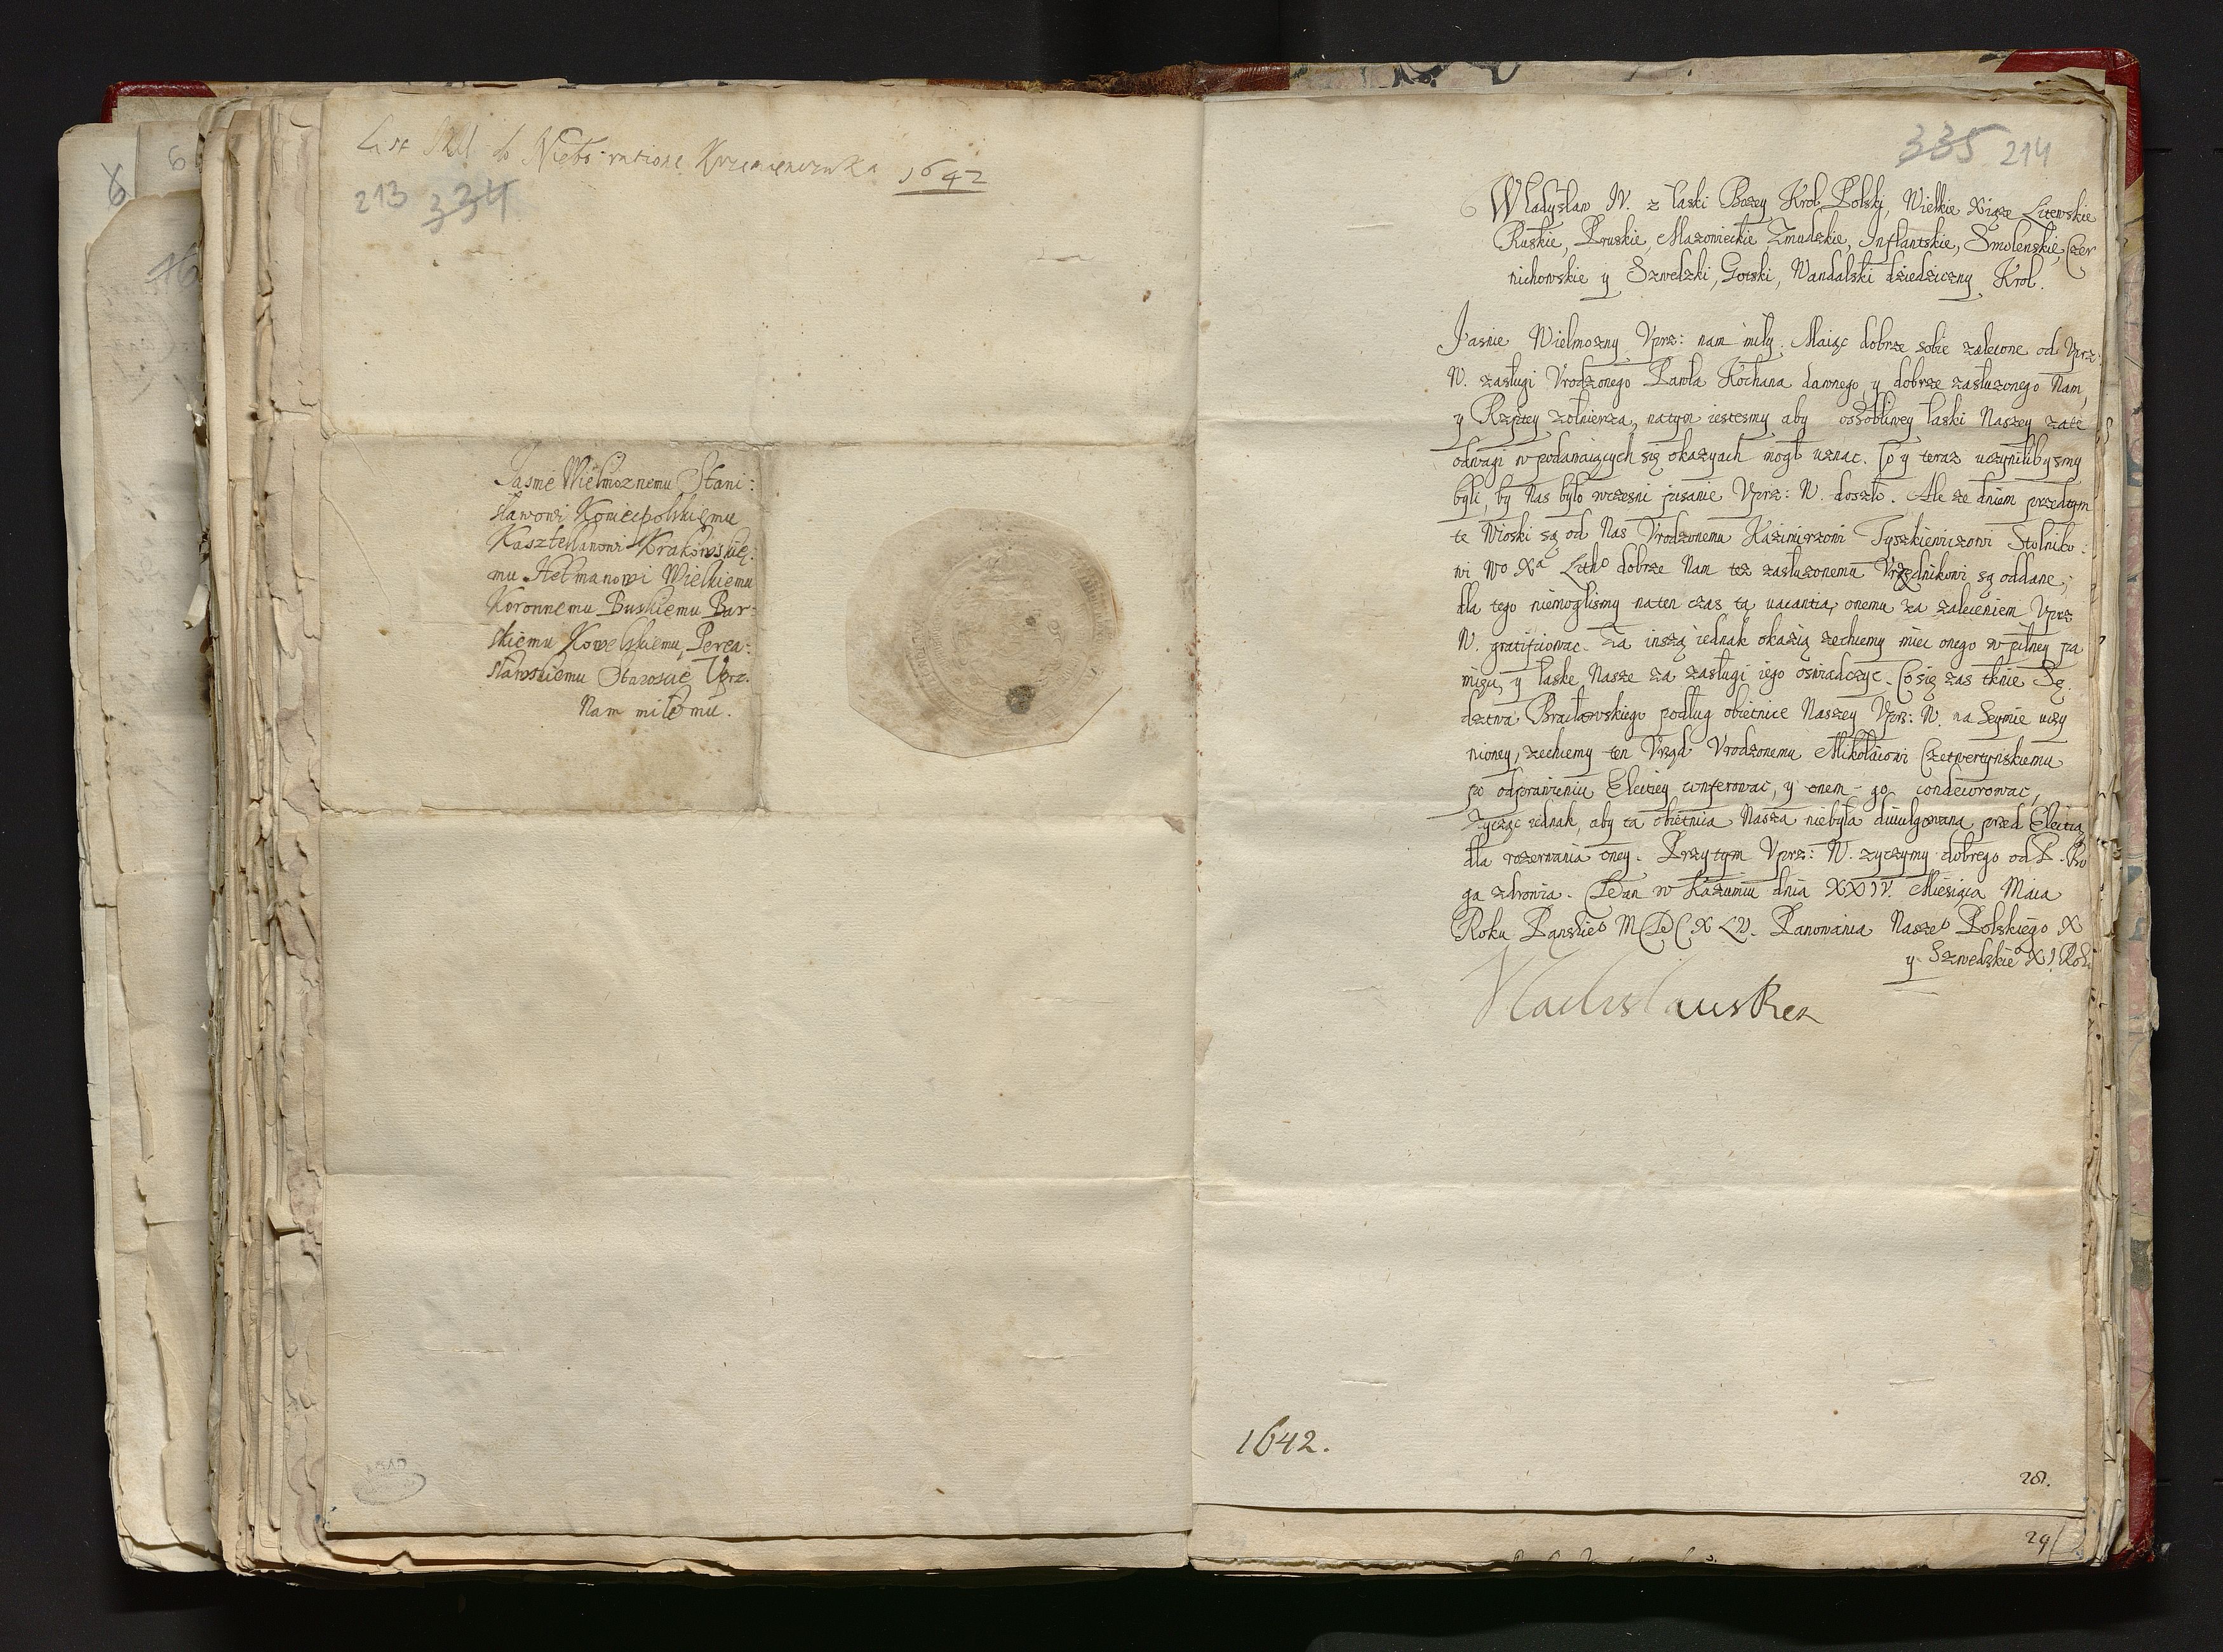 1642
213 334
Jasnie Wielmoznemu Stani:
sławowi Koniecpolskiemu
Kasztellanowi Krakowskie:
mu Hetmanowi Wielkiemu
Koronnemu Buskiemu Bar:
skiemu Kowelskiemu, Perea:
sławskiemu Staroscie Vprz.
Nam miłemu.
335 214
Władysław IV. z łaski Bozey Krol Polski, Wielkie Xiąze Litewskie
Ruskie, Pruskie, Mazowieckie Zmudzkie, Inflantskie, Smolenskie, Czer
nichowskie y Szwedzki, Gotski, Wandalski dziedziczny Krol.
Jasnie Wielmozny Vprz: nam miły. Maiąc dobrze sobie zalecone od Vprz:
W. zasługi Vrodzonego Pawła Kochana dawnego y dobrze zasłuzonego Nam,
y Rzptey zołnierza, natym iestesmy aby ossobliwey łaski Naszey za te
odwagi w podawaiących się okazyach mogł uznac. Co y teraz uczynilibysmy
byli, by Nas było wczesni pisanie Vprz: W. doszło. Ale ze dniem przedtym
te Wioski są od Nas Vrodzonemu Kazimierzowi Tyszkiewiczowi Stolniko:
wi Wo Xa Litho dobrze Nam tez zasłuzonemu Vrzędnikowi są oddane;
dla tego niemoglismy naten czas tą vacantią onemu za zaleceniem Vprz
W. gratificowac. Za inszą iednak okazią zechcemy miec onego w pilney pa
mięci, y łaske Nasze za zasługi iego oswiadczyc. Co się zas tknie Sę
dztwa Bracławskiego podług obietnice Naszey Vprz: W. na Seymie uczy
nioney, zechcemy ten Vrząd Vrodzonemu Mikołaiowi Czetwertynskiemu
po odprawieniu Electiey conferowac, y onem - go condecorowac,
Zycząc iednak, aby ta obietnica Nasza niebyła divulgowana przed Electią
dla rozerwania oney. Przytym Vprz: W. zyczymy dobrego od P. Bo
ga zdrowia. Dan w Kazumiu dnia XXIV. Miesiąca Maia
Roku Panskieo MDCXLII. Panowania Naszeo Polskiego X
y Szwedzkieo XI Roku
Vladislaus Rex
1642.
281.
29